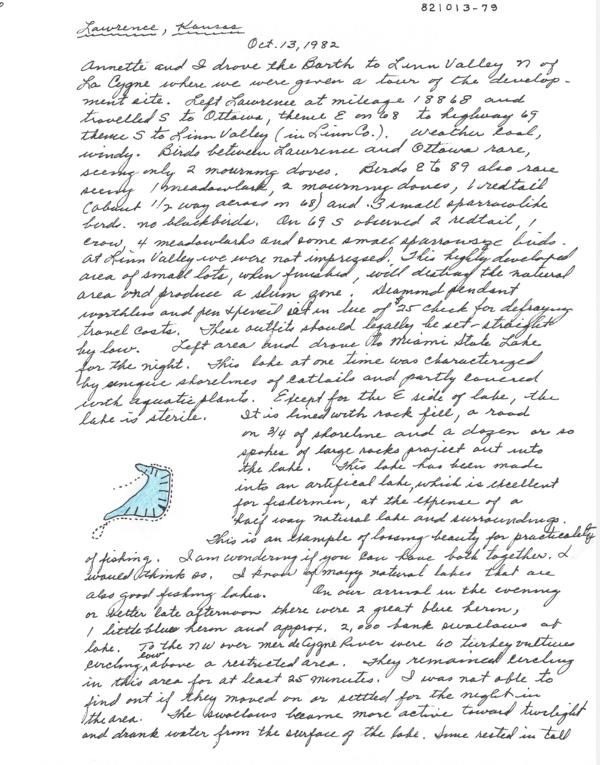 821013-79
Lawrence, Kansas
Oct. 13, 1982
Annette and I drove the Barth to Linn Valley N of
La Cygne where we were given a tour of the develop-
ment site. Left Lawrence at mileage 18868 and
travelled S to Ottawa, thence E on 68 to highway 69
thence S to Linn Valley (in Linn Co.). Weather cool,
windy. Birds between Lawrence and Ottawa rare,
seeing only 2 mourning doves. Birds E to 89 also rare
seeing 1 meadowlark, 2 mourning doves, 1 redtail
(about 1/2 way across on 68) and 3 small sparrowlike
birds. no blackbirds. On 69 S observed 2 redtail, 1
crow, 4 meadowlarks and some small sparrowsize birds.
At Linn Valley we were not impressed. This highly developed
area of small lots, when finished, will destroy the natural
area and produce a slum zone. Diamond pendant
worthless and pen & pencil set in lue of $25 check for defraying
travel costs. These outfits should legally be set-straight
by law. Left area and drove to Miami State Lake
for the night. This lake at one time was characterized
by unique shorelines of cattails and partly covered
with aquatic plants. Except for the E side of lake, the
lake is sterile. It is lined with rock fill, a road
on 3/4 of shoreline and a dozen or so
spokes of large rocks project out into
the lake. This lake has been made
into an artifical lake, which is excellent
for fishermin, at the expense of a
half way natural lake and surroundings.
This is an example of loosing beauty for practicality
of fishing. I am wondering if you can have both together. I
would think so. I know of many natural lakes that are
also good fishing lakes. On our arrival in the evening
or better late afternoon there were 2 great blue heron,
1 little blue heron and approx. 2,000 bank swallows at
lake. To the NW over mer de Cygne River were 60 turkey vultures
circling low above a restricted area. They remained circling
in this area for at least 25 minutes. I was not able to
find out if they moved on or settled for the night in
the area. The swallows became more active toward twilight
and drank water from the surface of the lake. Some rested in tall